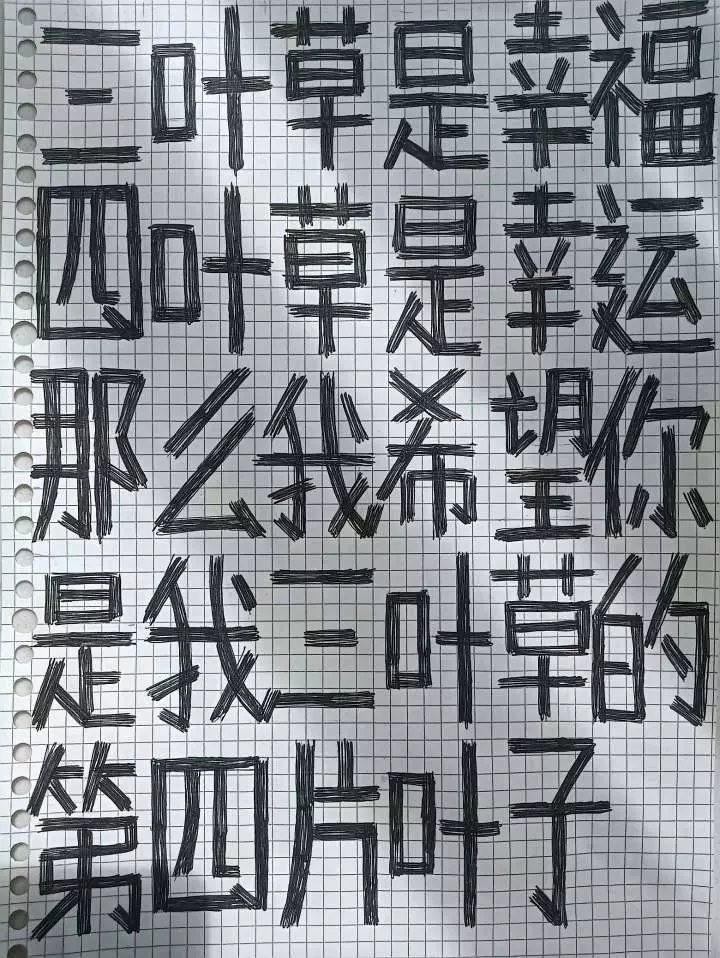 三叶草是幸福
四叶草是幸运
那么我希望你
是我三叶草的
第四片叶子